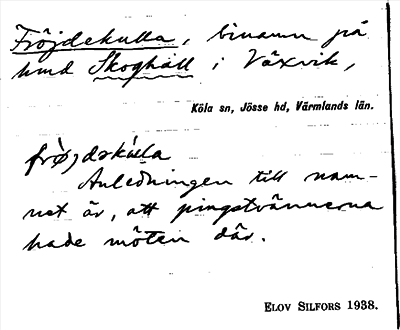 Fröjdekulla, binamn på
hmd Skoghäll i Växvik,
Köla sn, Jösse hd, Värmlands län.
frö̀jdekúlla
Anledningen till nam-
net är, att pingstvännerna
hade möten där.
ELOV SILFORS 1938.